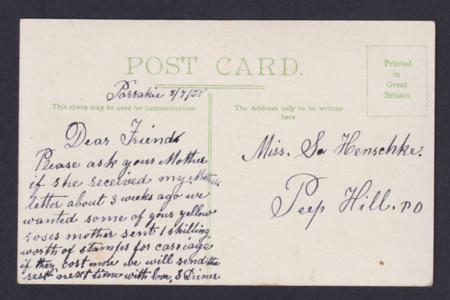 POST CARD.
Parrakie 8/7/08
This space may be used for communication
The Address only to be written
here
Printed
in
Great
Britain
Dear Friend
Please ask your Mother
if she received my Mothers
letter about 3 weeks ago we
wanted some of your yellow
roses mother sent 1 shilling
worth of stamps for carriage
if they cost more we will send the
rest next time with love, S Diener
Miss. Henschke.
Peep Hill. PO